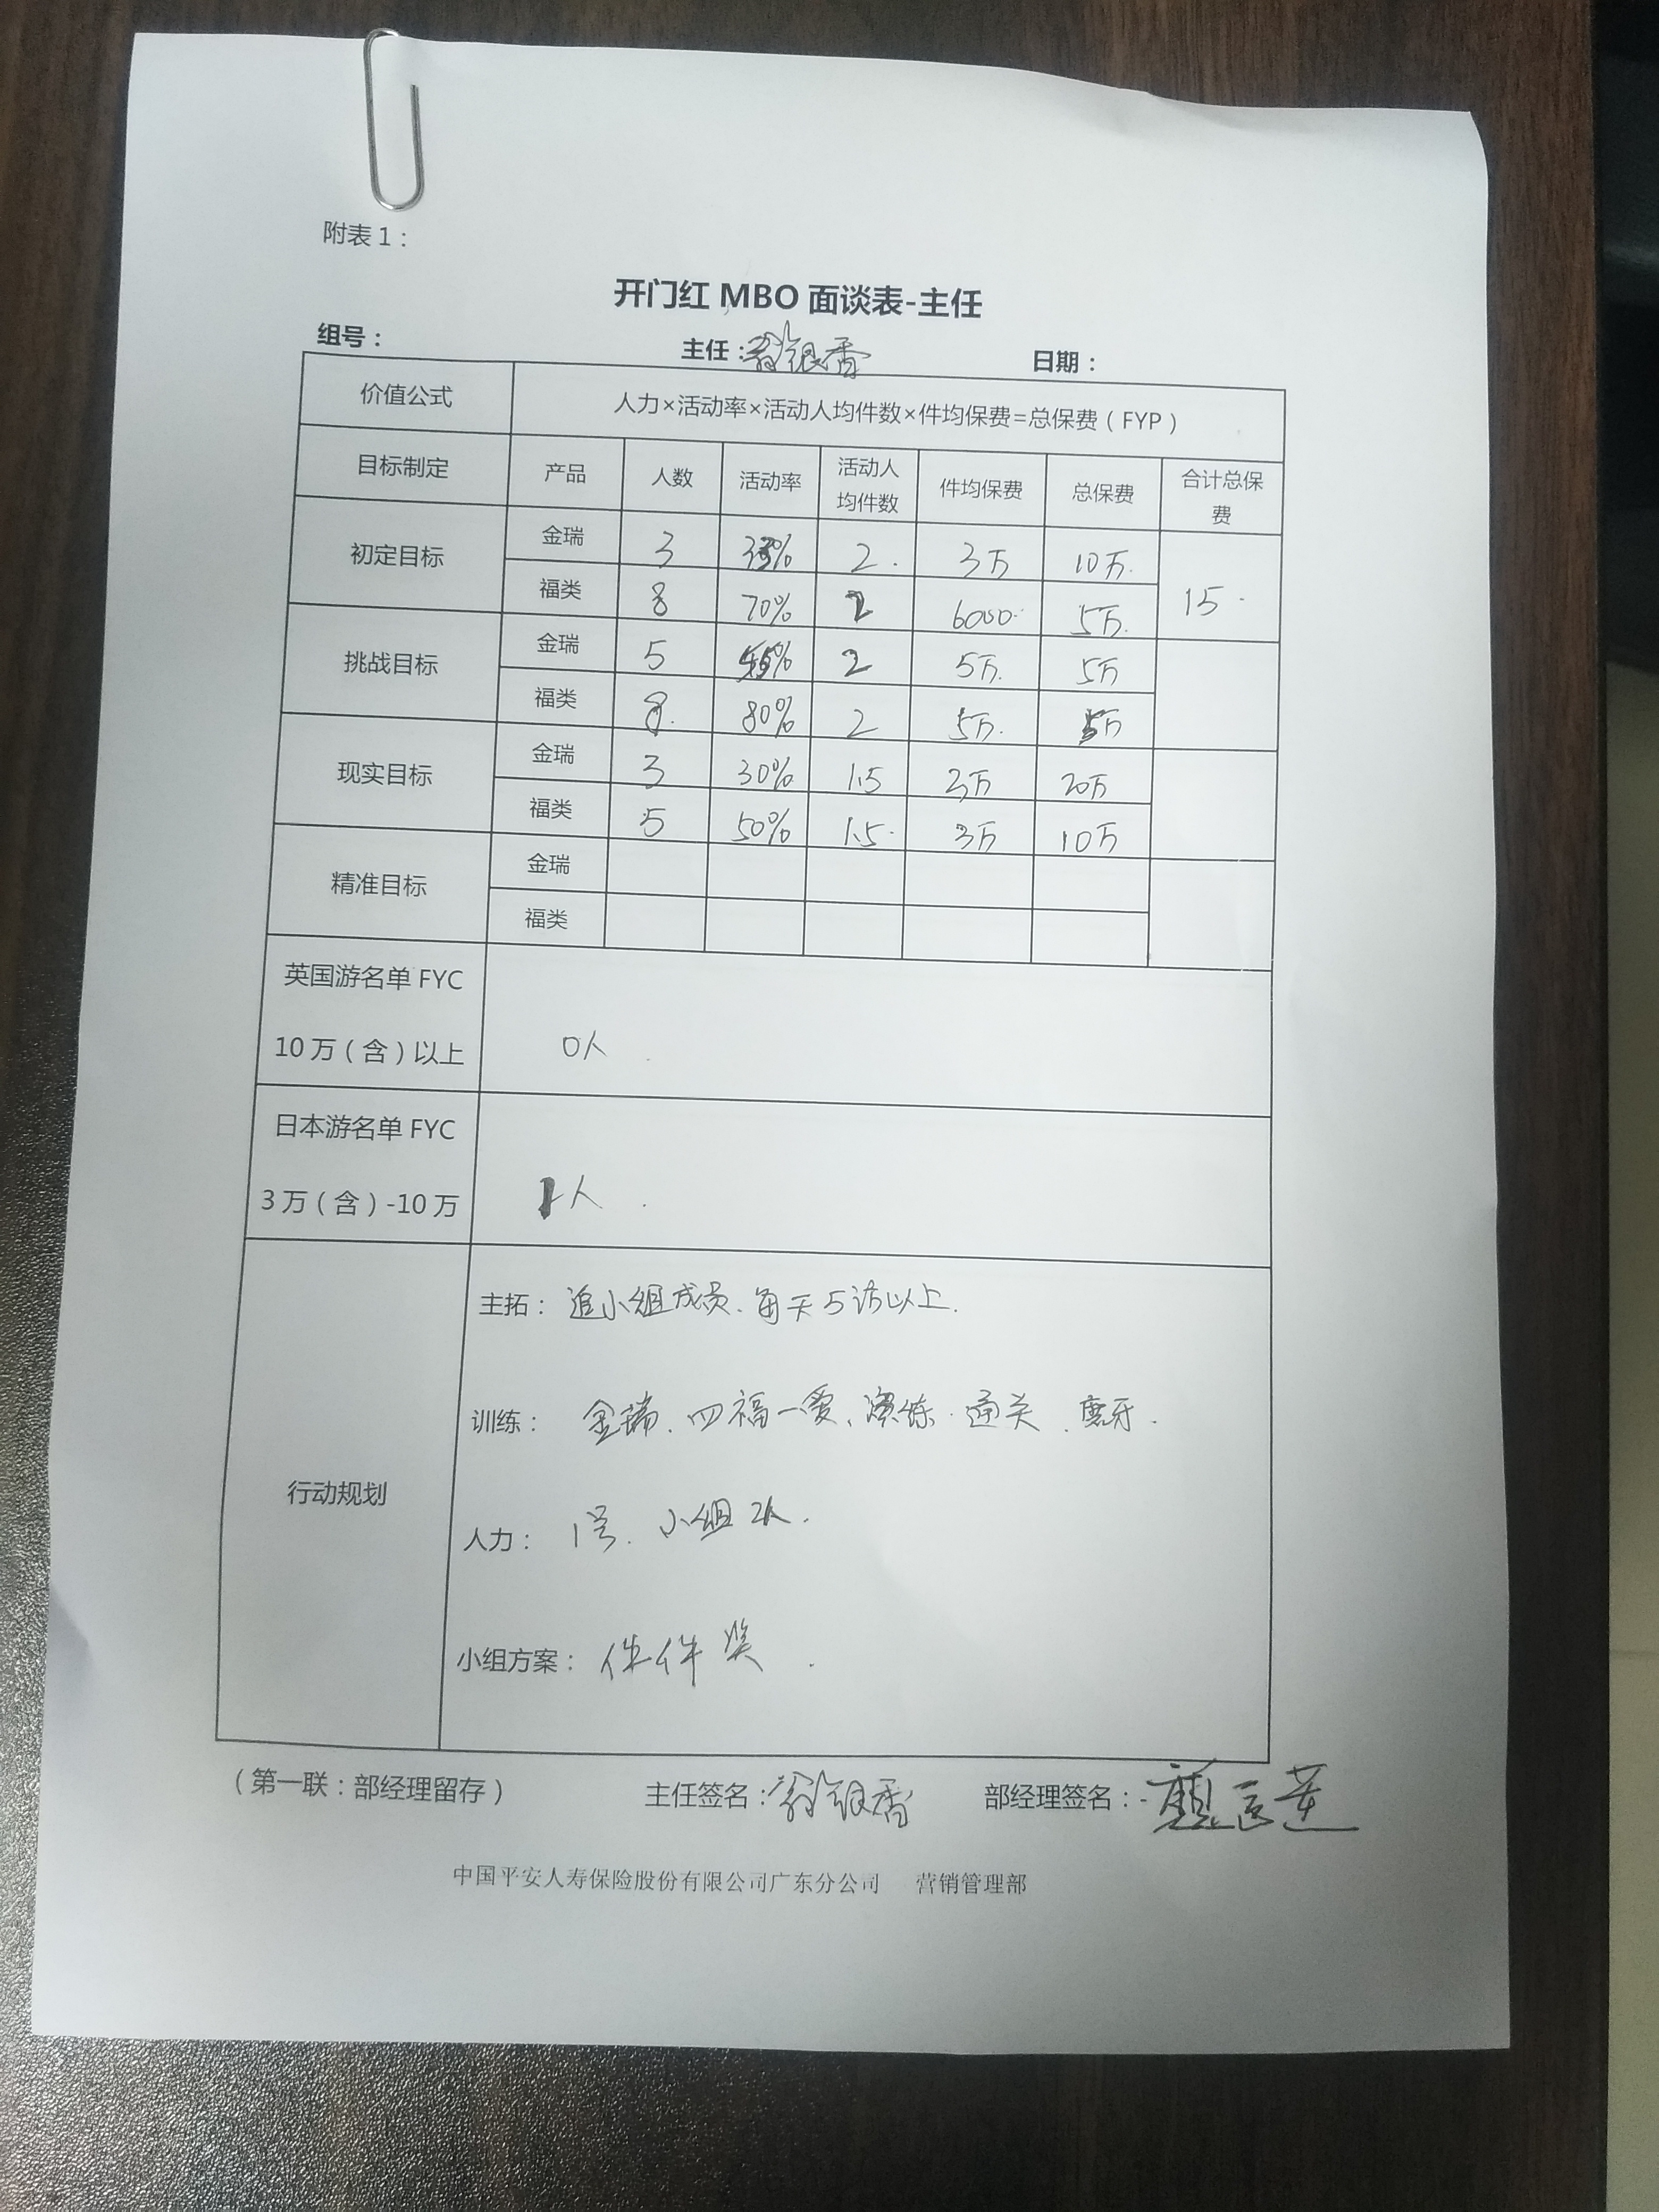 附表1：
开门红 MBO 面谈表-主任
组号： 主任：翁银香 日期：
价值公式 人力×活动率×活动人均件数×件均保费=总保费（FYP）
目标制定 产品 人数 活动率 活动人均件数 件均保费 总保费 合计总保费
初定目标 金瑞 3 2. 3万 10万. 15.
福类 8 70% 2 6000. 5万.
挑战目标 金瑞 5 45% 2 5万. 5万
福类 8. 80% 2 5万. 5万
现实目标 金瑞 3 30% 1.5 3万 20万
福类 5 50% 1.5. 3万 10万
精准目标 金瑞
福类
英国游名单 FYC
10万（含）以上 0人
日本游名单 FYC
3万（含）-10万 1人.
行动规划
主拓：追小组成员.每天5访以上.
训练：金瑞、四福一爱、演练.通关.磨牙.
人力：1号.小组2人.
小组方案：件件奖.
（第一联：部经理留存） 主任签名：翁银香 部经理签名：
中国平安人寿保险股份有限公司广东分公司 营销管理部